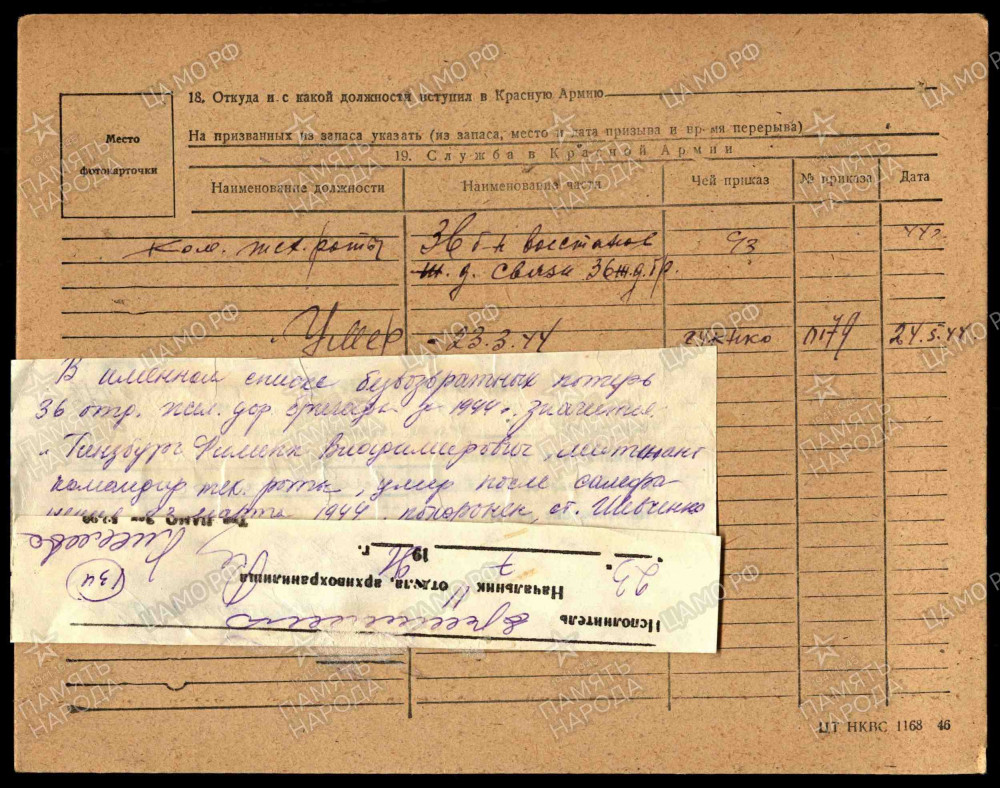 18. Откуда и с какой должности вступил в Красную Армию
Место фотокарточки
На призванных из запаса указать (из запаса, место и дата призыва и время перерыва)
19. Служба в Красной Армии
Наименование должности Наименование части Чей приказ № приказа Дата
ком. тех. роты 36 б-н восстанов
ж. д. связи 36 ж.д.бр.
Умер - 23.3.44 №179 24.5.44
В именном списке безвозвратных потерь
36 отд. жел. дор. бригады за 1944 г. значится
Гинзбург Владимирович, лейтенант
командир тех. роты, умер после
23 марта 1944 похоронен, ст. Шевченко
"23" 7 19 г.
Начальник отдела, архивохранилища
Исполнитель
ЦТ НКВС 1168 46
ЦАМО РФ
ПАМЯТЬ НАРОДА